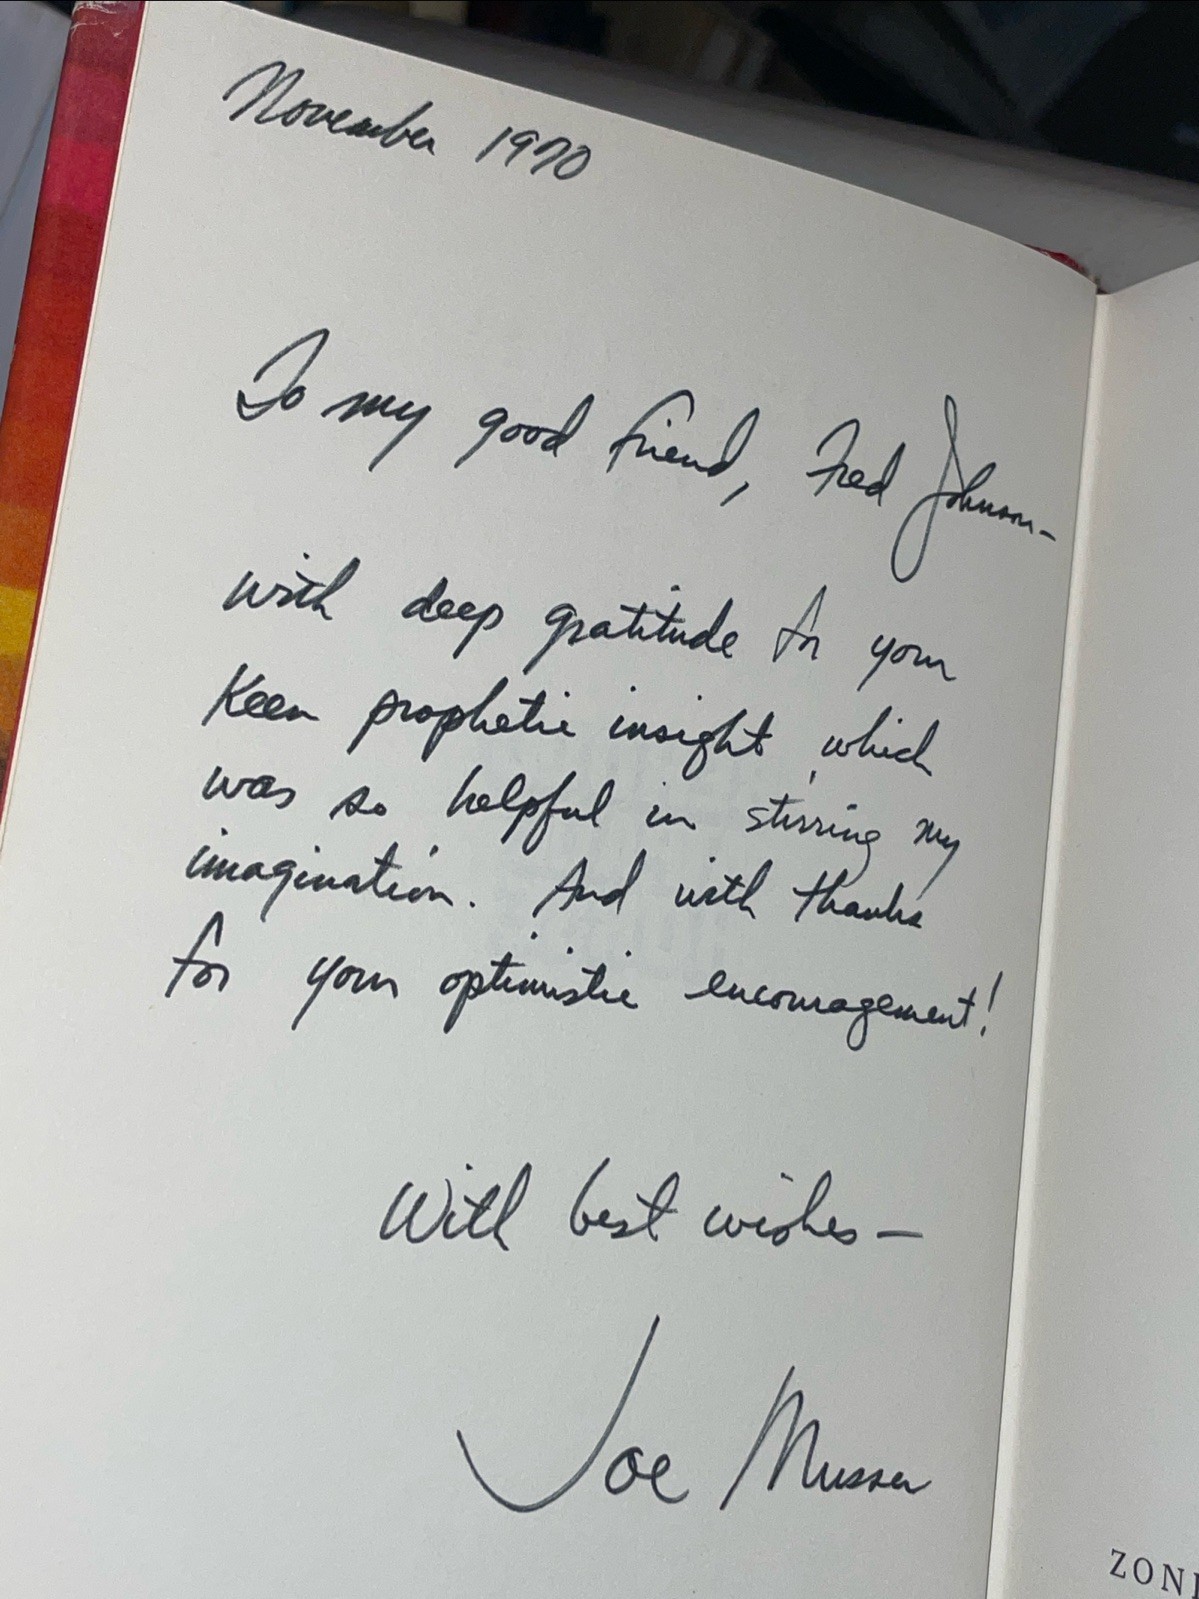 November 1970
To my good friend, Fred Johnson-
with deep gratitude for your
Keen prophetic insight, which
was so helpful in stirring my
imagination. And with thanks
for your optimistic encouragement!
With best wishes—
Joe Musser
ZON